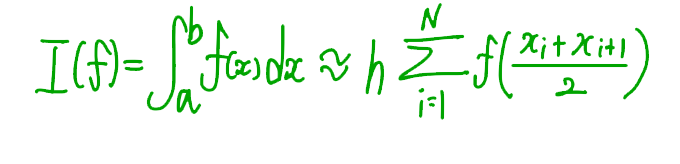 I(f) = ∫_a^b f(x) dx ≈ h ∑_{i=1}^{N} f((x_i + x_{i+1})/2)